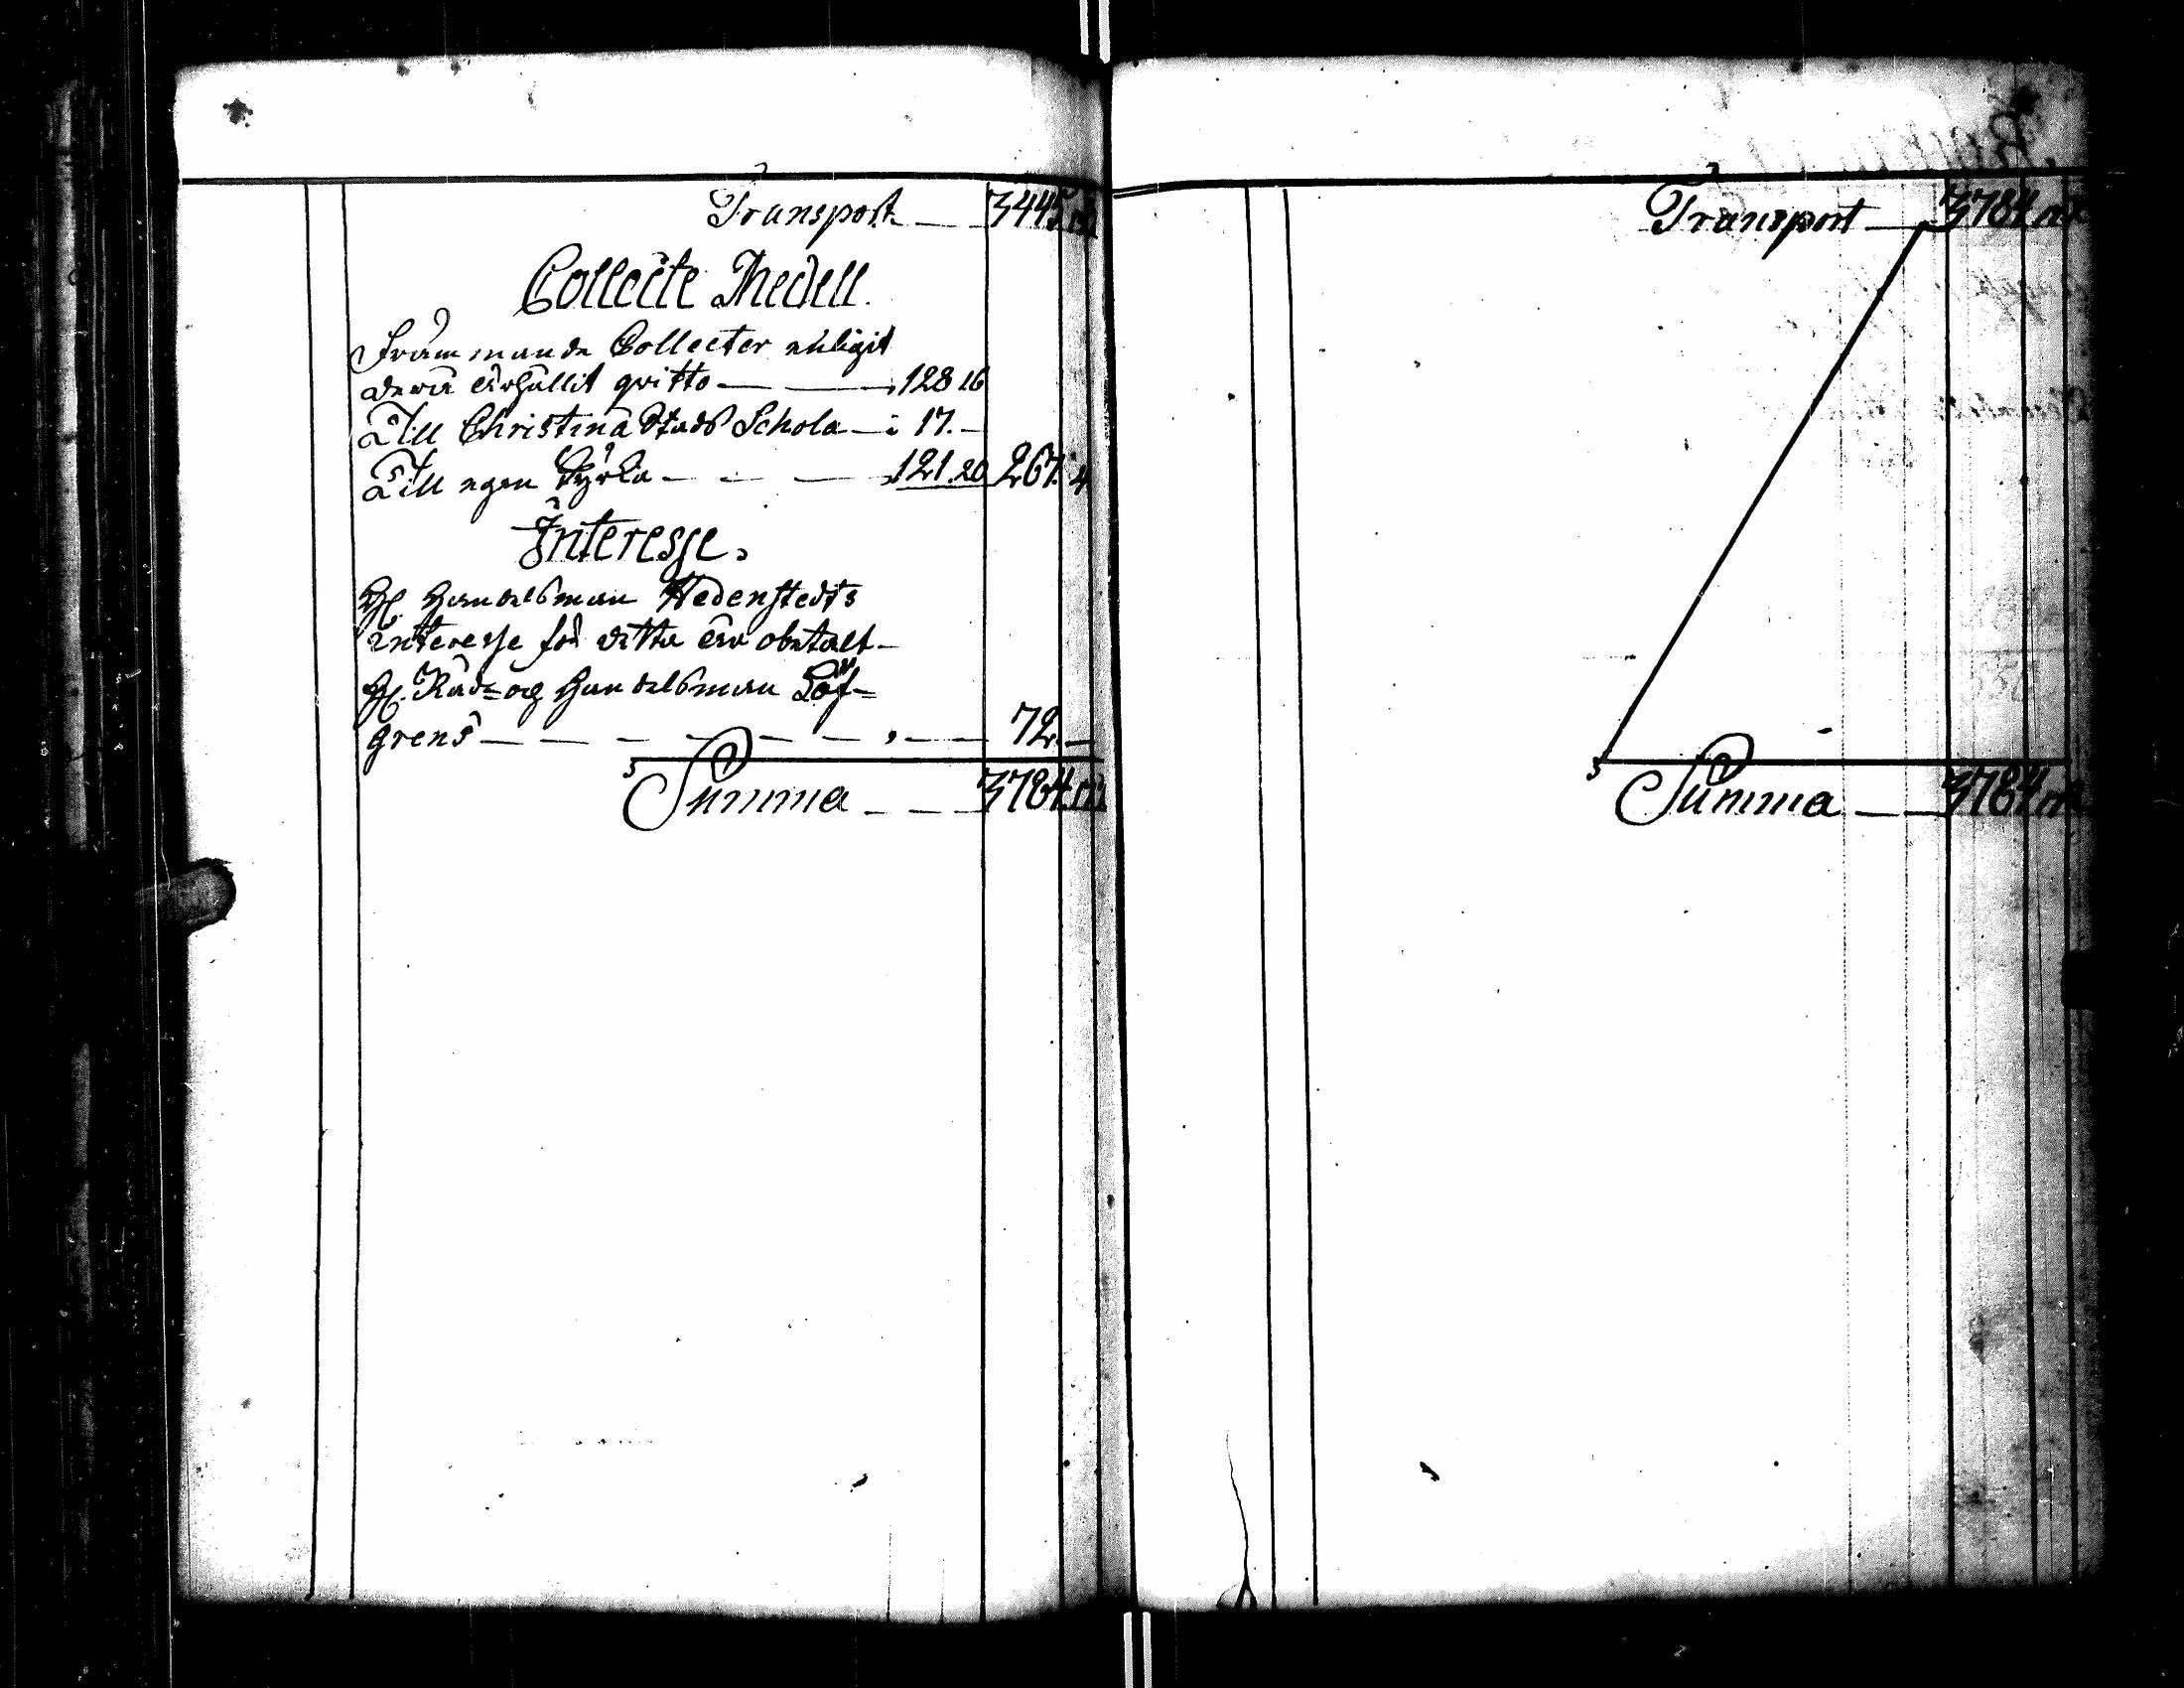 Transport 3445
Collecte Medell.
Främmande Collecter enligit
derå erhållit qvitto 128 16
Till Christinæ Stads Schola 17.
Till egen Kyrka 121.20 267. 4
Interesse.
H. Handelsman Hedenstedts
interesse för detta åhr obetalt
H. Råd= og Handelsman Löf=
grens 72.
Summa 3784
Transport 3784
Summa 3784